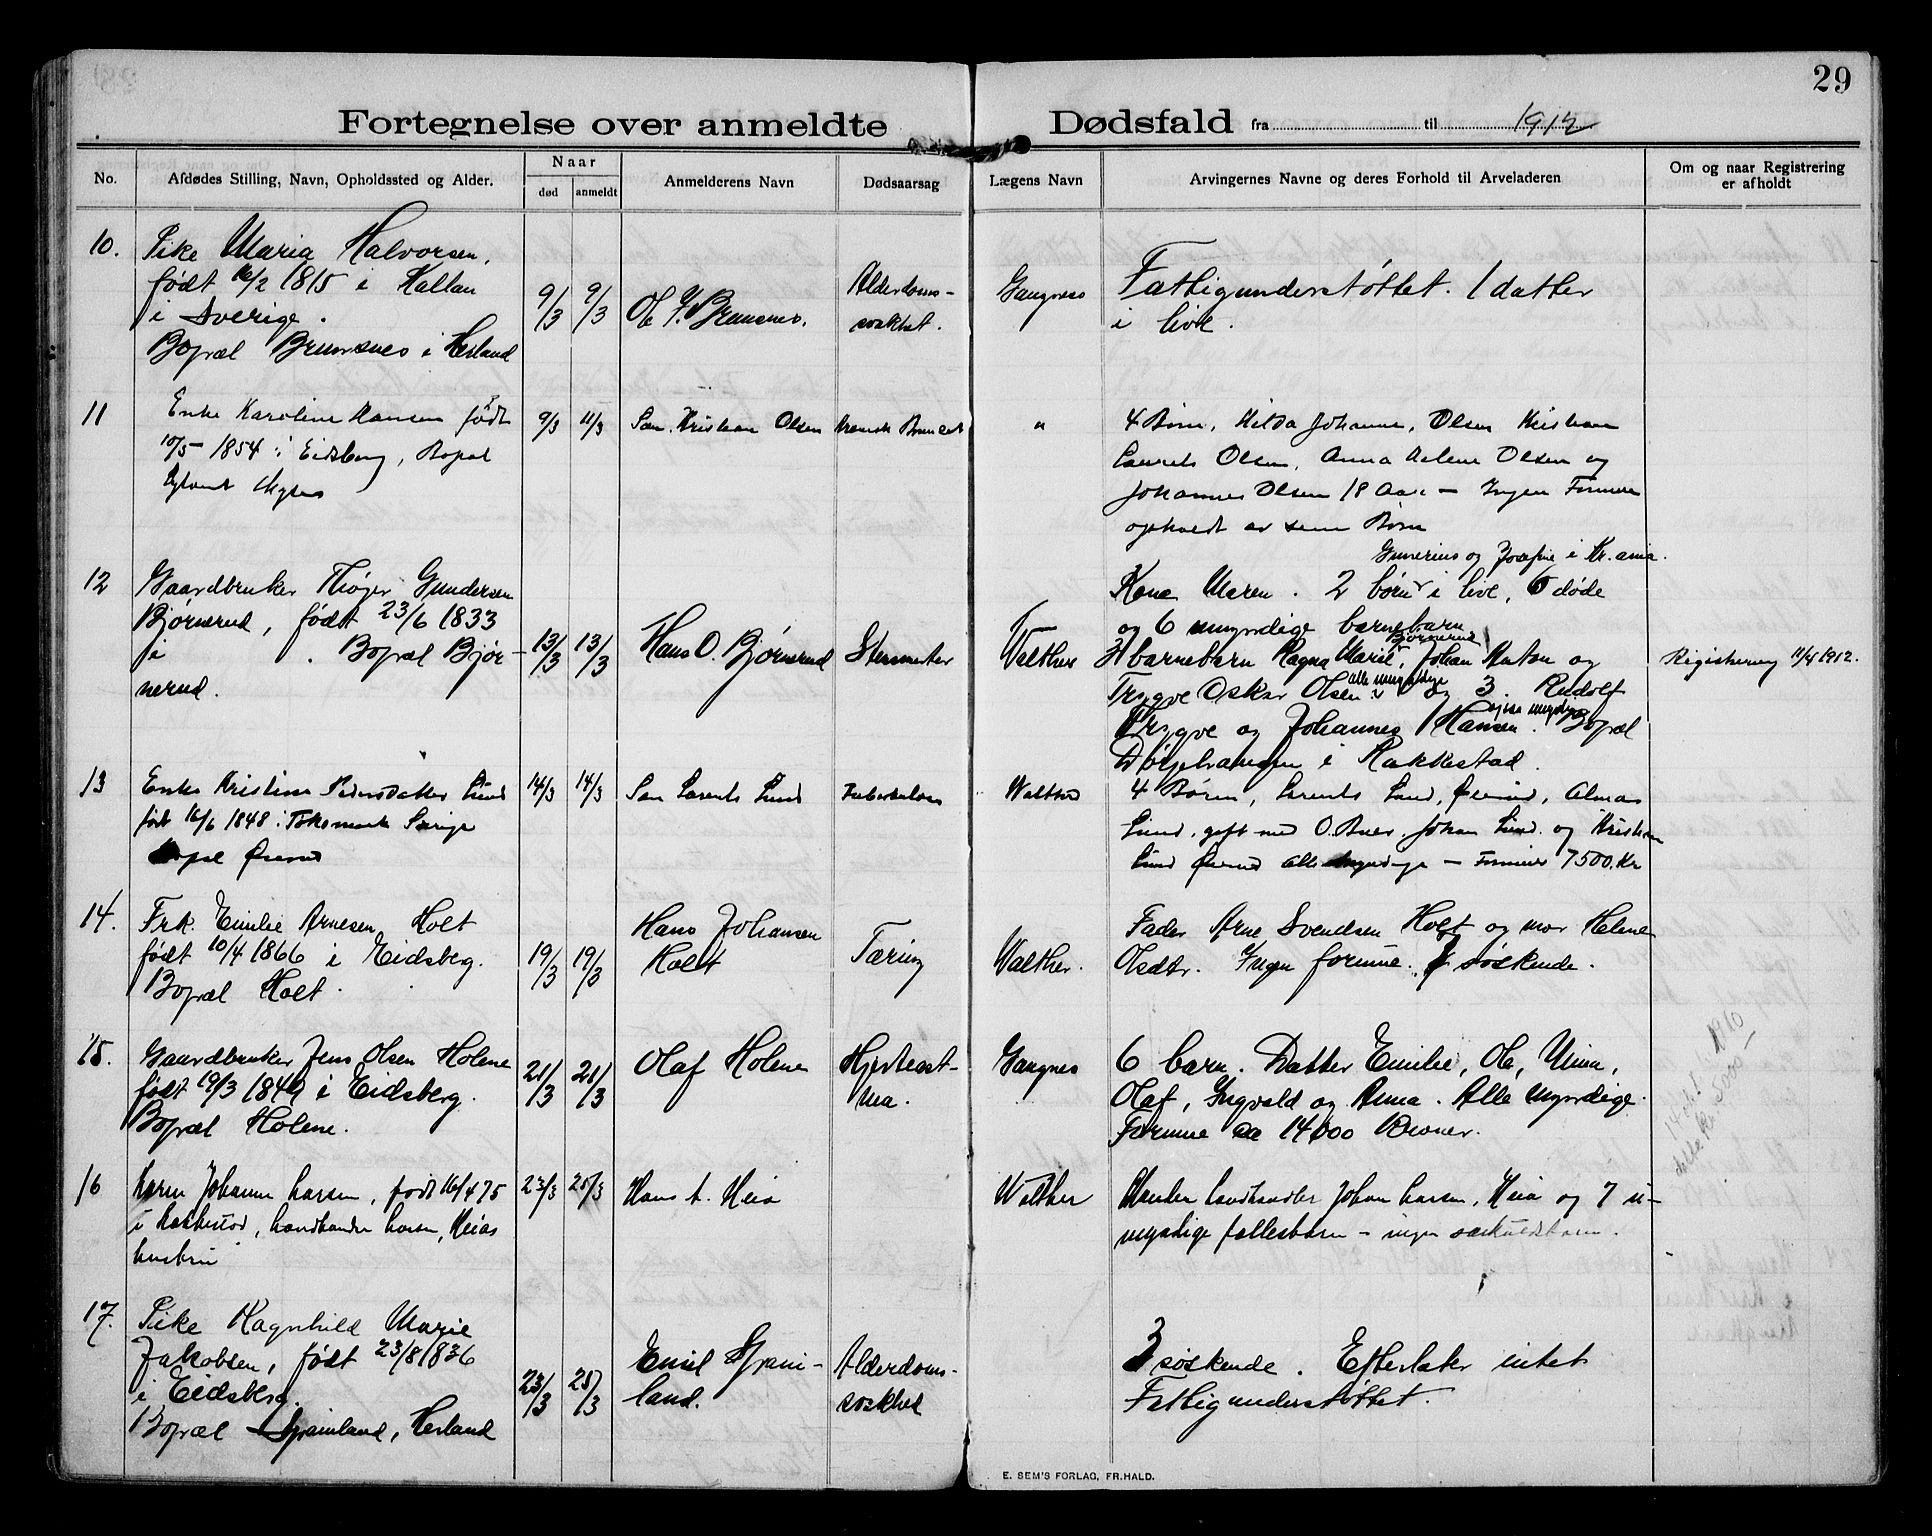 29
Fortegnelse over anmeldte Dødsfald fra til 1912
No.
Afdødes Stilling, Navn, Opholdssted og Alder.
Naar
død
anmeldt
Anmelderens Navn
Dødsaarsag
Lægens Navn
Arvingernes Navne og deres Forhold til Arveladeren
Om og naar Registrering
er afholdt
10.
Pike Maria Halvorsen,
født 16/2 1815 i Hallan
i Sverige.
Bopæl Brunsnes i Herland
9/3
9/3
Alderdoms-
svakhet.
Gangnes
Fattigunderstøttet. 1 datter
i live.
11
Enke Karoline Hansen født
10/5 1854 i Eidsberg, Bopæl
Mysen
9/3
11/3
Søn Kristian Olsen
"
4 Børn, Hilda Johanne, Olsen Kristian
Laurits Olsen, Anna Helene Olsen og
Johannes Olsen 18 Aar - Ingen Formue
opholdt av sine Børn
12
Gaardbruker Thøger Gundersen
Bjørnerud, født 23/6 1833
i . Bopæl Bjør-
nerud.
13/3
13/3
Hans O. Bjørnerud
Walther
Gunerius og Josefine i Kr.ania.
Kone Maren. 2 børn i live, 6 døde
og 6 umyndige barnebarn
3 barnebarn Ragna Marie Bjørnerud, Johan Anton og
Trygve Oskar Olsen alle umyndige og 3. Rudolf
Trygve og Johannes Hansen også umyndige. Bopæl
i Rakkestad.
Registrering 11/4 1912.
13
Enke Kristine Pedersdatter Lund
født 16/6 1848 i Sverige
Bopæl
14/3
14/3
Søn Laurits Lund
Tuberkulose
Walther
4 Børn, Laurits Lund, , Alma
Lund, gift med O. , Johan Lund og Kristian
Lund alle myndige - Formue 7500. Kr
14.
Frk. Emilie Arnesen Holt
født 10/4 1866 i Eidsberg.
Bopæl Holt.
19/3
19/3
Hans Johansen
Holt
Tæring
Walther.
Fader Arne Svendsen Holt og mor Helene
Olsdtr. Ingen formue. søskende.
15.
Gaardbruker Jens Olsen Holene
født 19/3 1849 i Eidsberg.
Bopæl Holene.
21/3
21/3
Olaf Holene
Hjerteast-
ma.
Gangnes
6 barn. Datter Emilie, Ole, Mina,
Olaf, Ingvald og Anna. Alle myndige.
Formue ca 14000 Kroner.
1910
kr. 5000-
16
Karen Johanne Larsen, født 16/4 75
i Rakkestad, Landhandler Larsen, Heias
hustru
23/3
25/3
Hans L. Heia
Walther
Landhandler Johan Larsen, Heia og 7 u-
myndige fællesbarn - ingen særkuldsbarn.
17.
Pike Ragnhild Marie
Jakobsen, født 23/8 1836
i Eidsberg.
Bopæl Grainland, Herland
23/3
25/3
Emil Grain-
land.
Alderdoms-
svakhet
3 søskende. Efterlater intet
Fattigunderstøttet.
E. SEM'S FORLAG, FR.HALD.